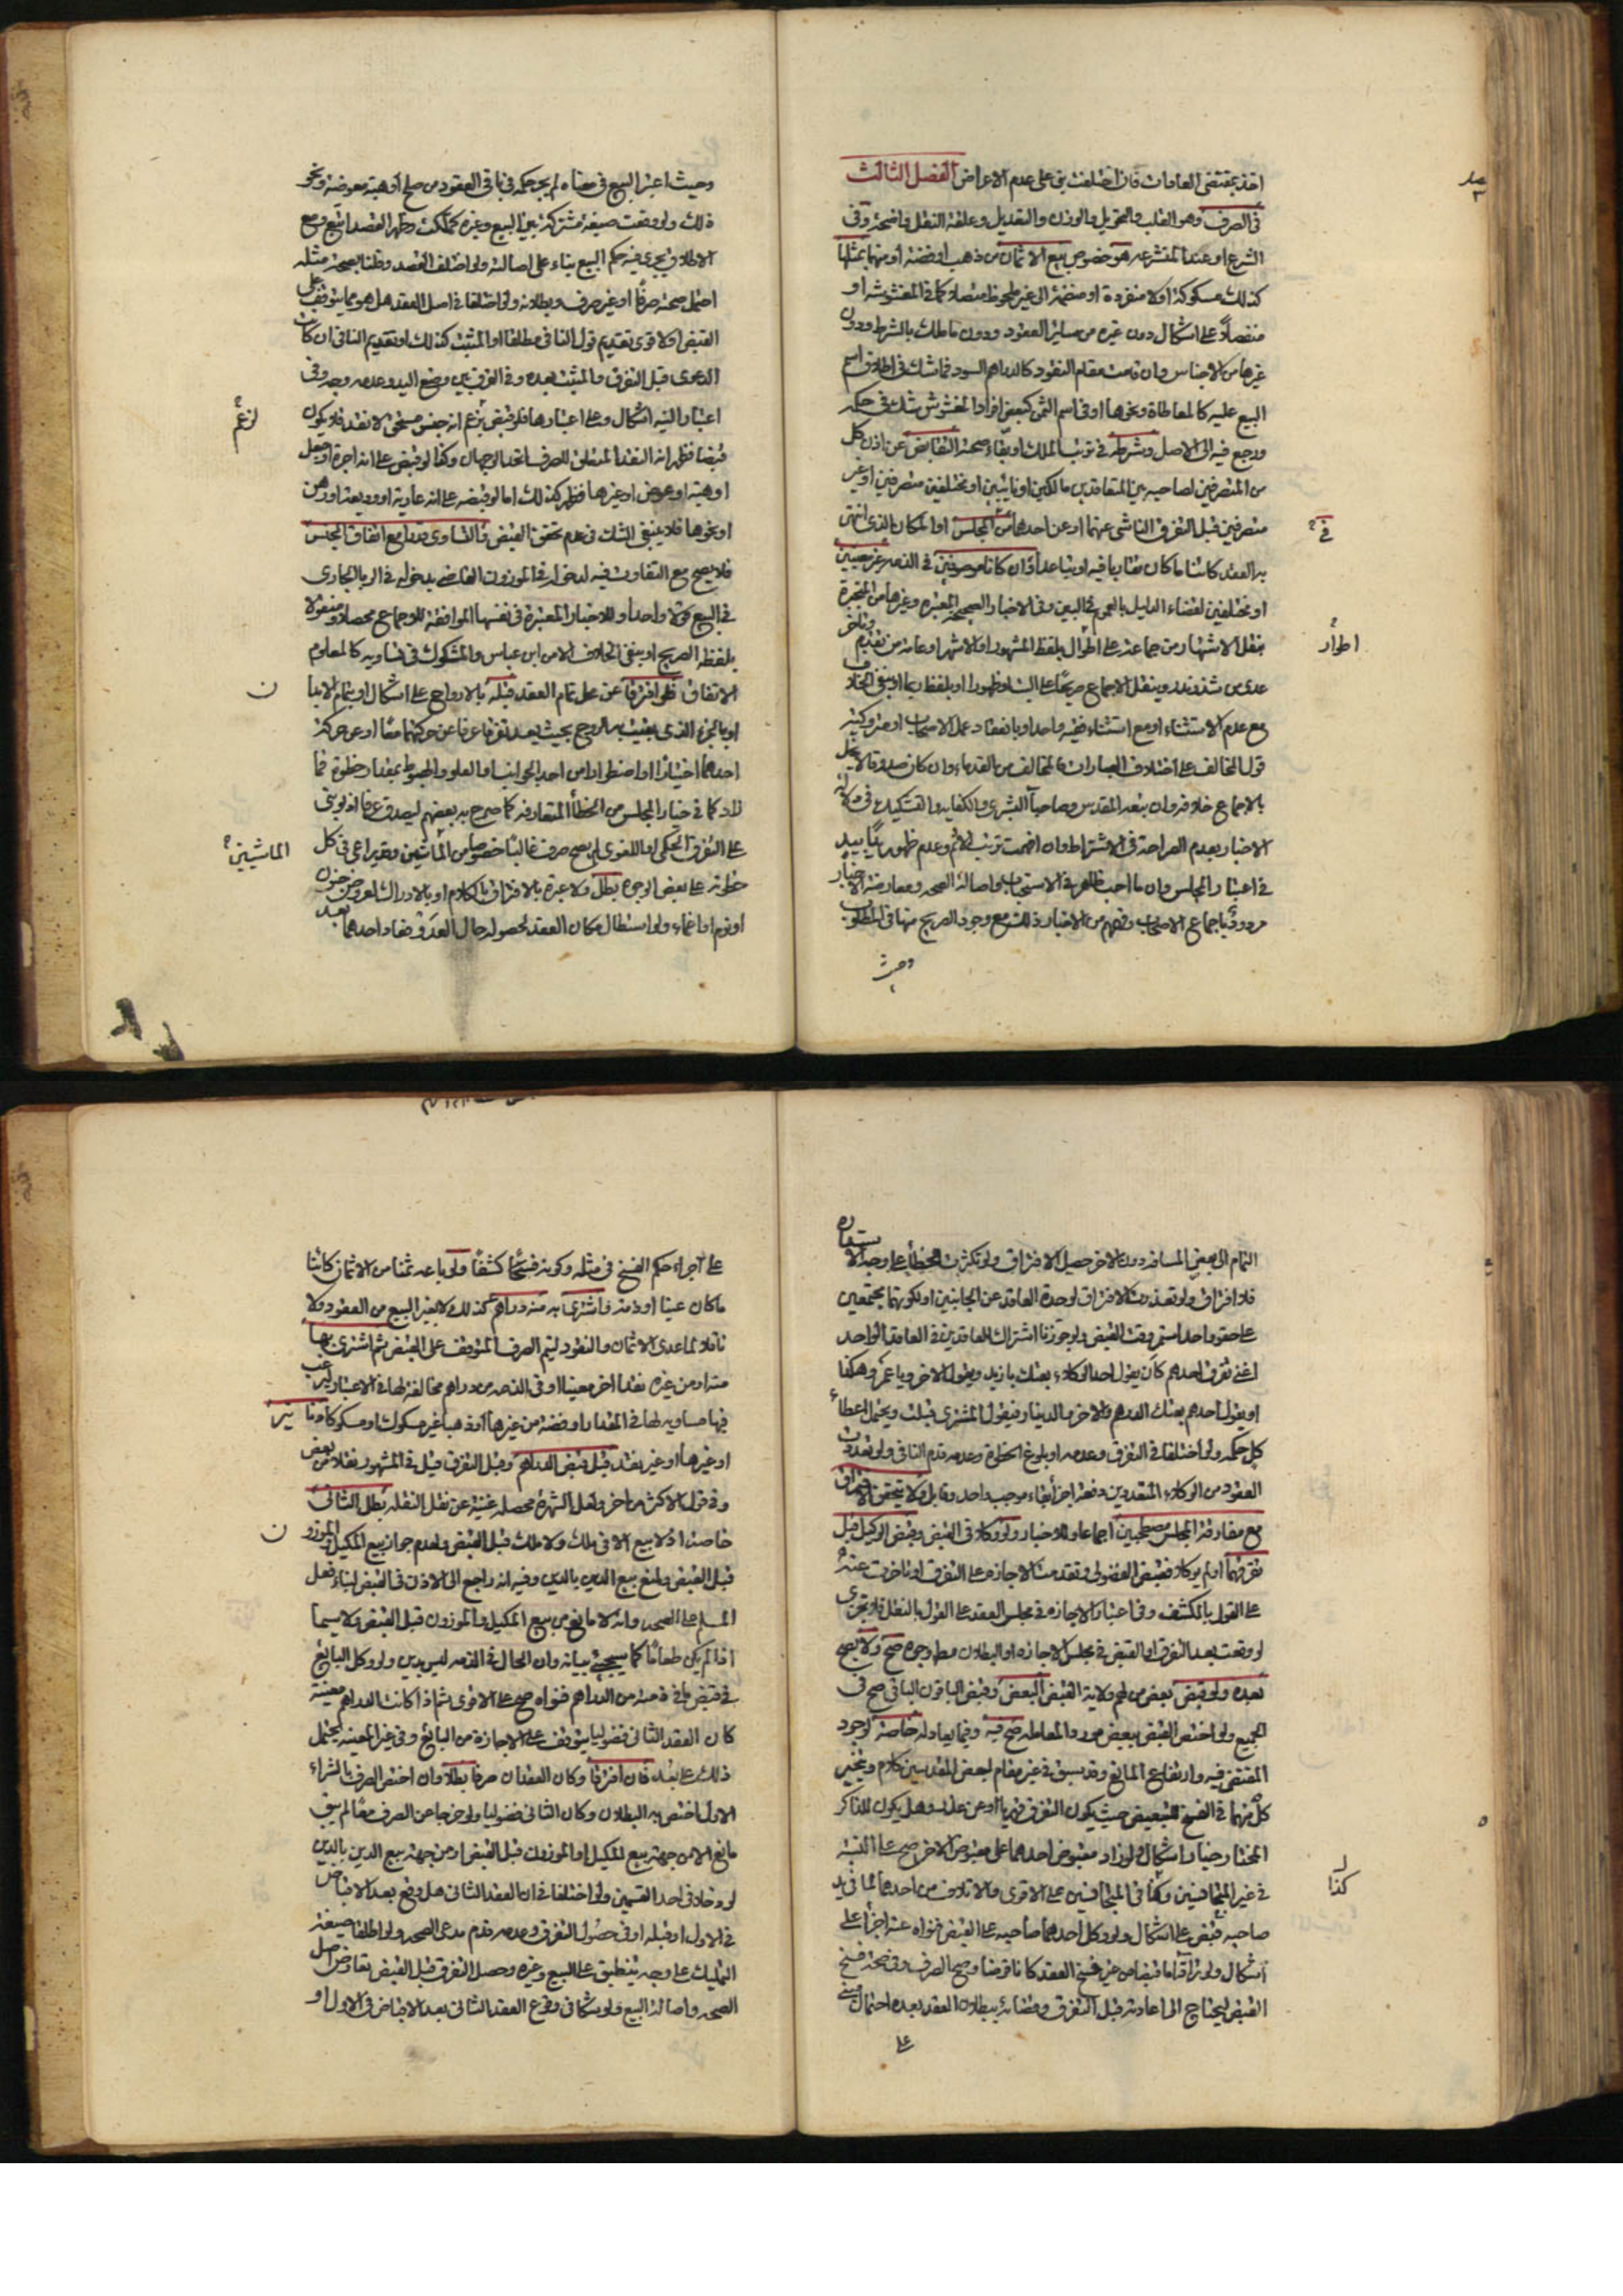 اخذ بمقتضى العادات فان اختلفت بنى على عدم الاعراض الفصل الثالث
في الصرف وهو القلب والتحويل والوزن والتعديل وعلقة النقل واضحة وفى
الشرع او عند المتشرعه هو خصوص بيع الاثمان من ذهب او فضة او منهما بمثلها
كذلك مسكوكة اولا منفردة او منضمة الى غير ملحوظ متضاد كما في المغشوشه او
على اشكال دون غيره من سائر العقود ودون ما ملك بالشرط ودون
غيرها من الاجناس وان قامت مقام النقود كالدراهم السود فما شك في اطلاق اسم
البيع عليه كالمعاطاة ونحوها او فى اسم الثمن كبعض افراد المغشوش شك في حكمه
ورجع فيه الى الاصل وشرطه في ترتب الملك او بقاء صحته التقابض عن اذن كل
من المتصرفين لصاحبه بين المتعاقدين مالكين او نائبين او مختلفين متصرفين او غير
متصرفين قبل التفرق الناشى عنهما او عن احدهما عن المجلس او المكان الذى
به العقد كائنا ما كان تقاربا فيه او تباعدا وان كانا موصوفين في الذمه غير معينين
او مختلفين لقضاء الدليل بالعموم في البين وفى الاخبار الصحيحة المعتبره وغيرها من المنجبرة
بنقل الاشتهار من جماعة على اطوار بلفظ المشهور او الاشهر او عامة من تقدم وتاخر
عدى من شذ وندر وبنقل الاجماع صريحا على البت او ظهورا او بلفظ ربما او بنفى الخلاف
مع عدم الاستثناء او مع استثناء فقيه واحد او بانعقاد عمل الاصحاب او متروكية
قول المخالف على اختلاف العبارات والمخالف من القدماء وان كان صدوقا لا يخل
بالاجماع خلافه وان تبعه المقدس وصاحبا البشرى والكفايه والتشكيك في دلالة
الاخبار بعدم الصراحة في الاشتراط وان افهمت ترتب الاثم وعدم ظهور يدا بيد
في اعتبار المجلس وان ما احب ظاهر في الاستحباب واصالة الصحه ومعارضة الاخبار
مردود باجماع الاصحاب وفهمهم من الاخبار ذلك مع وجود الصريح منها فى المطلوب
وحيث
اطوار
في
وحيث اعتبر البيع فى معناه لم يجر حكمه فى باقى العقود من صلح او هبة معوضة ونحو
ذلك ولو وقعت صيغة مشتركة بين البيع وغيره كملكت وظهر القصد اتبع ومع
الاطلاق يجرى فيه حكم البيع بناء على اصالته ولو اختلف القصد وظنا بصحة مثله
احتمل صحته صرفا او غير صرف وبطلانه ولو اختلفا في اصل العقد هل هو مما يتوقف على
القبض اولا قوى تقديم قول النافى مطلقا او المثبت كذلك او تقديم النافى ان كان
الدعوى قبل التفرق والمثبت بعده وفى الفرق بين وضع اليد وعدمه وجه وفى
اعتبار النيه اشكال وعلى اعتبارها فلو قبض بزعم انه جنس مستحق لا نقد فلا يكون
قبضا فظهر انه النقد المتعلق للصرف اتجه الوجهان وكذا لو قبض على انه اجرة او جعل
او هبة او عوض او غيرها فظهر كذلك اما لو قبضه على انه عارية او وديعة او رهن
او نحوها فلا ينبغى الشك فى عدم تحقق القبض والتساوى قدرا مع اتفاق الجنس
فلا يصح مع التفاوت فيه لدخوله في الموزون القاضى بدخوله في الربا الجارى
في البيع قولا واحدا وللاخبار المعتبرة فى نفسها الموافقة للاجماع محصلا ومنقولا
بلفظه الصريح او بنفى الخلاف الا من ابن عباس والمشكوك فى تساويه كالمعلوم
الاتفاق فلو افترقا عن محل تمام العقد قبله بالارواح على اشكال او بتمام الابدان
او بالجزء الذى يغيب به الروح بحيث يعد تفرقا عرفا عن حركتهما معا او عن حركة
احدهما اختيارا او اضطرارا من احد الجوانب او العلو والهبوط بمقدار خطوة فما
زاد كما في خيار المجلس من الخطأ المتعارفه كما صرح به بعضهم ليصدق عرفا اذ لو بنى
على التفرق الحكمى او اللغوى لم يصح صرف غالبا خصوصا من الماشيين وهو يراعى فى كل
خطوة على بعض الوجوه بطل ولا عبرة بالافتراق بالكلام او بالادراك لعروض جنون
او نوم او اغماء ولو استطال مكان العقد لحصوله حال العدو فصار احدهما بعد
لزعم
ن
الماشيين
التمام الى بعض المسافه دون الاخر حصل الافتراق ولو تكثرت الخطأ على وجه الاستقامه
فلا افتراق ولو تعذرت الافتراق لوحدة العاقد عن الجانبين او لكونهما مجتمعين
على حقو واحد استمر وقت القبض ولو جوزنا اشتراك العاقدين في العاقد الواحد
اغنى تفرق احدهم كان يقول احد الوكلاء بعتك يا زيد ويقول الاخر ويا عمرو وهكذا
او يقول احدهم بعتك الدرهم والاخر بالدينار فيقول المشترى قبلت ويحتمل اعطاء
كل حكمه ولو اختلفا في التفرق وعدمه او بلوغ الخطوة وعدمه قدم النافى ولو تعددت
العقود من الوكلاء المتعددين دفعة اجزأ بقاء موجب واحد وقابل ولا يتحقق الافتراق
مع مفارقة المجلس مصطحبين اجماعا وللاخبار ولو وكلا في القبض وقبض الوكيل قبل
تفرقهما او لم يوكلا فقبض الفضولى وتقدمت الاجازه على التفرق او تاخرت عنه
على القول بالكشف وفى اعتبار الاجازه في مجلس العقد على القول بالنقل فلا تجزى
لو وقعت بعد التفرق او القبض في مجلس الاجازه او البطلان مط وجوه صح ولا يصح
بعده ولو قبض بعض من لهم ولاية القبض البعض وقبض الباقون الباقى صح فى
الجميع ولو اختص القبض ببعض مورد المعامله صح فيه وفيما يعادله خاصة لوجود
المقتضى فيه وارتفاع المانع وقد سبق في غير مقام لبعض المقدسين كلام ويتخير
كل منهما في الفسخ للتبعيض حيث يكون التفرق قهريا او عن عذر وهل يكون للذاكر
المختار خيار اشكال ولو زاد مقبوض احدهما على مقبوض الاخر صح على النسبة
في غير المتجانسين وكذا فى المتجانسين على الاقوى والاتلاف من احدهما لما في يد
صاحبه قبض على اشكال ولو وكل احدهما صاحبه على القبض فنواه عنه اجزأ على
اشكال ولو ترادا ما قبضا من غير فسخ العقد كانا قرضا وصح الصرف وفى صحة فسخ
القبض ليحتاج الى اعادته قبل التفرق وقضائه ببطلان العقد بعده احتمال مبنى
على
كذا
على اجراء حكم الفسخ فى مثله وكونه فسخا كشفا ولو باعه ثمنا من الاثمان كائنا
ما كان عينا او ذمة واشترى به منه دراهم كذلك لا بغير البيع من العقود ولا
ناقلا لما عدى الاثمان والنقود ليتم الصرف المتوقف على القبض ثم اشترى بها
منه او من غيره نقدا اخر معينا او فى الذمه من دراهم مخالفة لها في الاعتبار لرغبة
فيها مساويه لها في المقدار او فضة من غيرها او ذهبا غير مسكوك او مسكوكا دنانير
او غيرها او غير نقد قبل قبض الدراهم وقبل التفرق قيل في المشهور نقلا من بعض
وفى قول الاكثر من اخر ولعل الشهرة محصله غنية عن نقل النقله بطل الثانى
خاصة اذ لا بيع الا فى ملك ولا ملك قبل القبض ولعدم جواز بيع المكيل والموزون
قبل القبض ولمنع بيع الدين بالدين وفيه انه راجع الى الاذن في القبض لبناء فعل
المسلم على الصحه وانه لا مانع من بيع المكيل والموزون قبل القبض ولا سيما
اذا لم يكن طعاما كما سيجئ بيانه وان الحال فى الذمه ليس بدين ولو وكل البائع
في قبض ما في ذمته من الدراهم فنواه صح على الاقوى ثم اذا كانت الدراهم معينة
كان العقد الثانى فضوليا يتوقف على الاجازة من البائع وفى غير المعينه يحتمل
ذلك على بعد فان افترقا وكان العقدان صرفا بطلا وان اختص الصرف بالشراء
الاول اختص به البطلان وكان الثانى فضوليا ولو خرجا عن الصرف معا لم يبق
مانع الا من جهة بيع المكيل او الموزون قبل القبض او من جهة بيع الدين بالدين
لو دخلا فى احد القسمين ولو اختلفا في ان العقد الثانى هل وقع بعد الاقباض
في الاول او قبله او فى حصول التفرق وعدمه قدم مدعى الصحه ولو اطلقا صيغة
التمليك على وجه ينطبق على البيع وغيره وحصل التفرق قبل القبض تعارض اصل
الصحه واصالة البيع ولو شكا فى وقوع العقد الثانى بعد الاقباض فى الاول او
ن